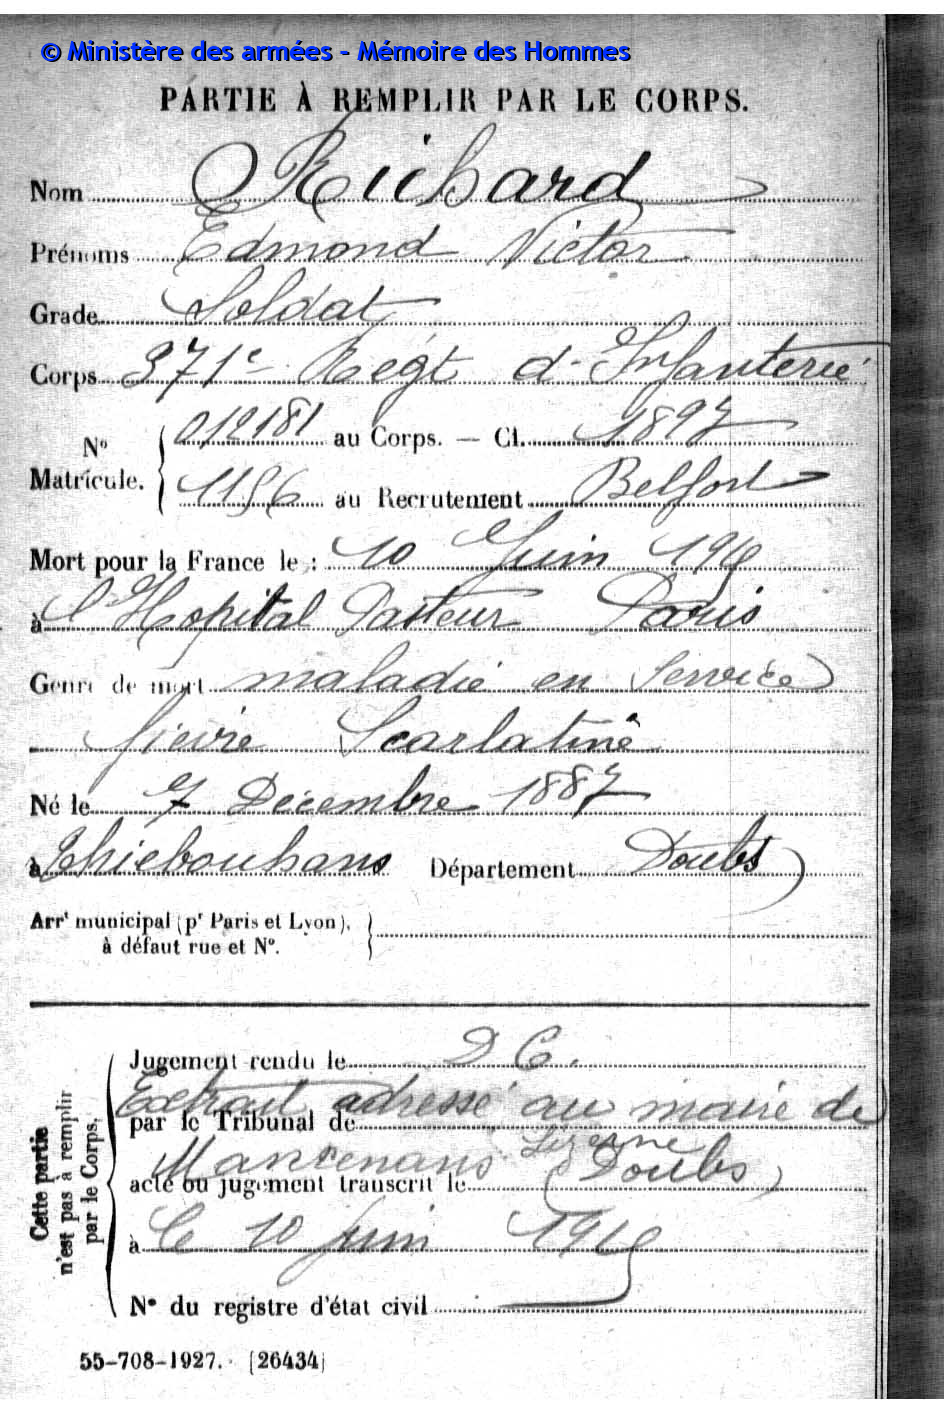 © Ministère des armées - Mémoire des Hommes
PARTIE À REMPLIR PAR LE CORPS.
Nom Richard
Prénoms Edmond Victor
Grade Soldat
Corps 371e Régt d'Infanterie
N° Matricule. 012181 au Corps. — Cl. 1897
1196 au Recrutement Belfort
Mort pour la France le : 10 Juin 1919
à l'Hopital Pasteur Paris
Genre de mort maladie en Service
fievre Scarlatine
Né le 7 Décembre 1887
à Thiebouhans Département Doubs
Arrt municipal (pr Paris et Lyon),
à défaut rue et N°.
Cette partie
n'est pas à remplir
par le Corps.
Jugement rendu le D C.
Extrait adressé au maire de
par le Tribunal de
Mancenans Lizerne (Doubs)
acte ou jugement transcrit le
à le 10 juin 1919
N° du registre d'état civil
55-708-1927. [26434]